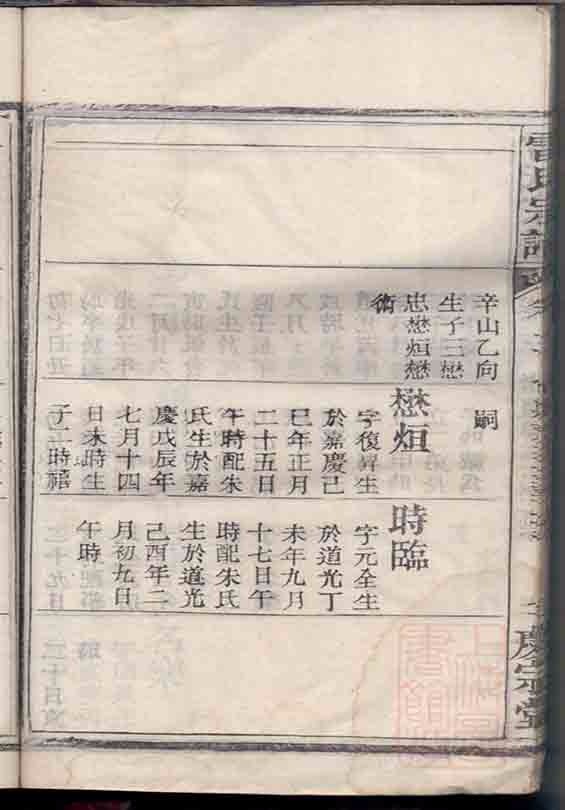 辛山乙向
生子三懋
忠懋烜懋
術
嗣
懋烜
字復昇生
於嘉慶己
巳年正月
二十五日
午時配朱
氏生於嘉
慶戊辰年
七月十四
日未時生
子二時禧
時臨
字元全生
於道光丁
未年九月
十七日午
時配朱氏
生於道光
己酉年二
月初九日
午時
氏宗譜
慶宗堂
上海圖
書館藏